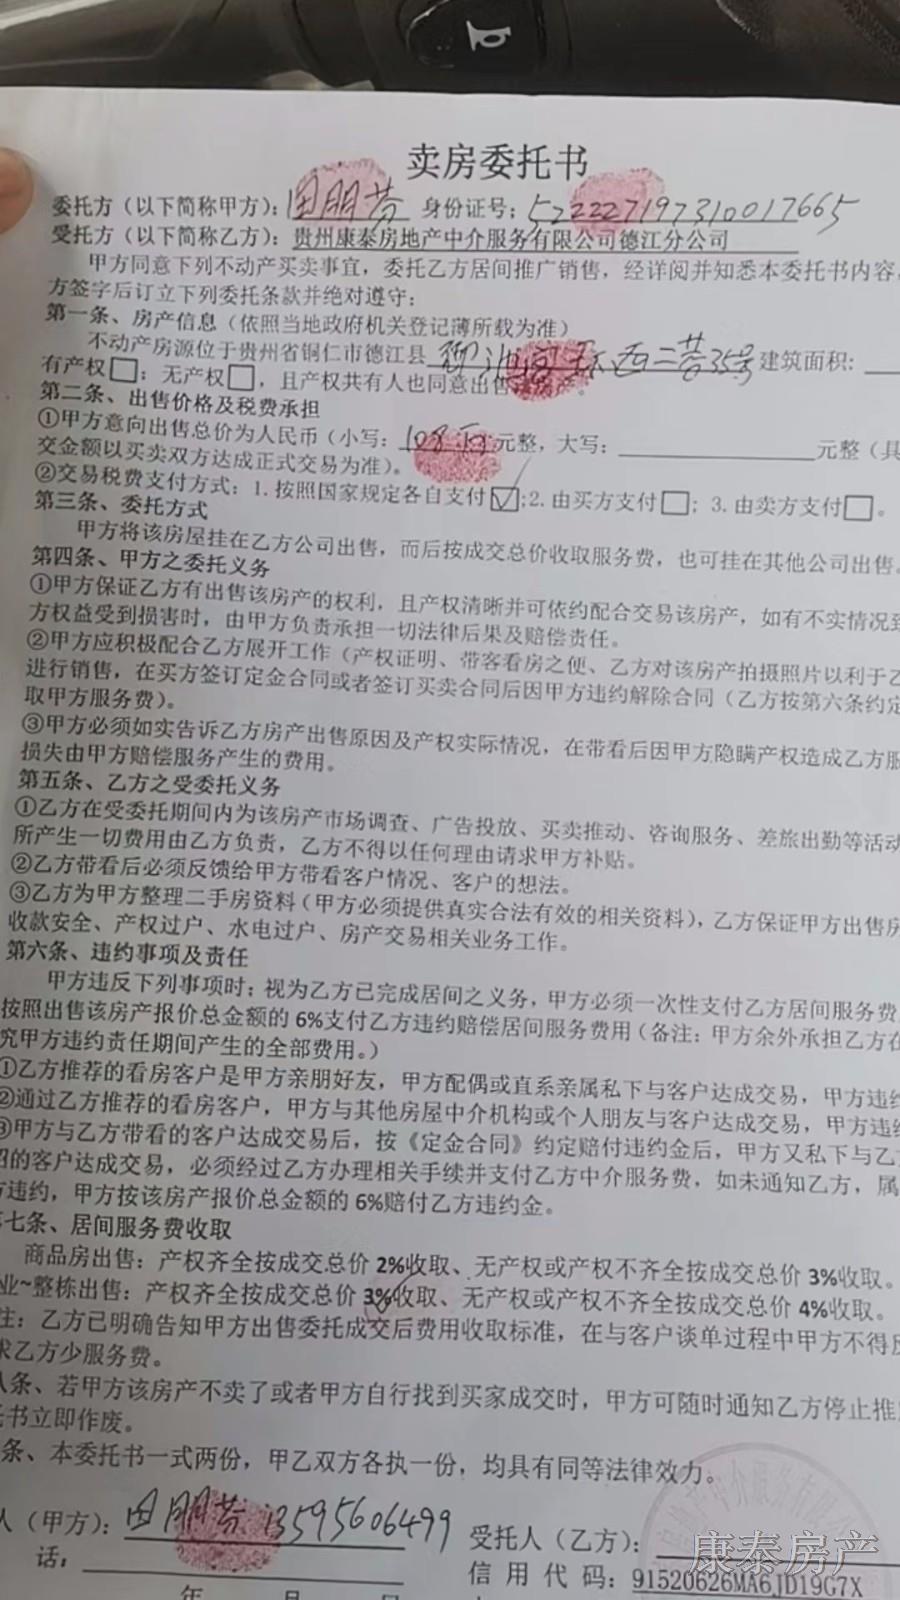 卖房委托书
委托方（以下简称甲方）：田朋芬 身份证号：522227197310017665
受托方（以下简称乙方）：贵州康泰房地产中介服务有限公司德江分公司
甲方同意下列不动产买卖事宜，委托乙方居间推广销售，经详阅并知悉本委托书内容，
方签字后订立下列委托条款并绝对遵守：
第一条、房产信息（依照当地政府机关登记薄所载为准）
不动产房源位于贵州省铜仁市德江县 西二巷35号 建筑面积：
有产权□；无产权□，且产权共有人也同意出售该房产。
第二条、出售价格及税费承担
①甲方意向出售总价为人民币（小写：108万元整，大写： 元整（具
交金额以买卖双方达成正式交易为准）。
②交易税费支付方式：1.按照国家规定各自支付☑；2.由买方支付□；3.由卖方支付□。
第三条、委托方式
甲方将该房屋挂在乙方公司出售，而后按成交总价收取服务费，也可挂在其他公司出售。
第四条、甲方之委托义务
①甲方保证乙方有出售该房产的权利，且产权清晰并可依约配合交易该房产，如有不实情况致
方权益受到损害时，由甲方负责承担一切法律后果及赔偿责任。
②甲方应积极配合乙方展开工作（产权证明、带客看房之便、乙方对该房产拍摄照片以利于乙
进行销售，在买方签订定金合同或者签订买卖合同后因甲方违约解除合同（乙方按第六条约定
取甲方服务费）。
③甲方必须如实告诉乙方房产出售原因及产权实际情况，在带看后因甲方隐瞒产权造成乙方服
损失由甲方赔偿服务产生的费用。
第五条、乙方之受委托义务
①乙方在受委托期间内为该房产市场调查、广告投放、买卖推动、咨询服务、差旅出勤等活动
所产生一切费用由乙方负责，乙方不得以任何理由请求甲方补贴。
②乙方带看后必须反馈给甲方带看客户情况、客户的想法。
③乙方为甲方整理二手房资料（甲方必须提供真实合法有效的相关资料），乙方保证甲方出售房
收款安全、产权过户、水电过户、房产交易相关业务工作。
第六条、违约事项及责任
甲方违反下列事项时；视为乙方已完成居间之义务，甲方必须一次性支付乙方居间服务费
按照出售该房产报价总金额的 6%支付乙方违约赔偿居间服务费用（备注：甲方余外承担乙方在
究甲方违约责任期间产生的全部费用。）
①乙方推荐的看房客户是甲方亲朋好友，甲方配偶或直系亲属私下与客户达成交易，甲方违约
②通过乙方推荐的看房客户，甲方与其他房屋中介机构或个人朋友与客户达成交易，甲方违约
③甲方与乙方带看的客户达成交易后，按《定金合同》约定赔付违约金后，甲方又私下与乙
绍的客户达成交易，必须经过乙方办理相关手续并支付乙方中介服务费，如未通知乙方，属
方违约，甲方按该房产报价总金额的 6%赔付乙方违约金。
第七条、居间服务费收取
商品房出售：产权齐全按成交总价 2%收取、无产权或产权不齐全按成交总价 3%收取。
业~整栋出售：产权齐全按成交总价 3%收取、无产权或产权不齐全按成交总价 4%收取。
注：乙方已明确告知甲方出售委托成交后费用收取标准，在与客户谈单过程中甲方不得反
求乙方少服务费。
八条、若甲方该房产不卖了或者甲方自行找到买家成交时，甲方可随时通知乙方停止推
托书立即作废。
条、本委托书一式两份，甲乙双方各执一份，均具有同等法律效力。
人（甲方）：田朋芬 13595606499 受托人（乙方）：
话： 信用代码：91520626MA6JD19G7X
年 月 日
康泰房产